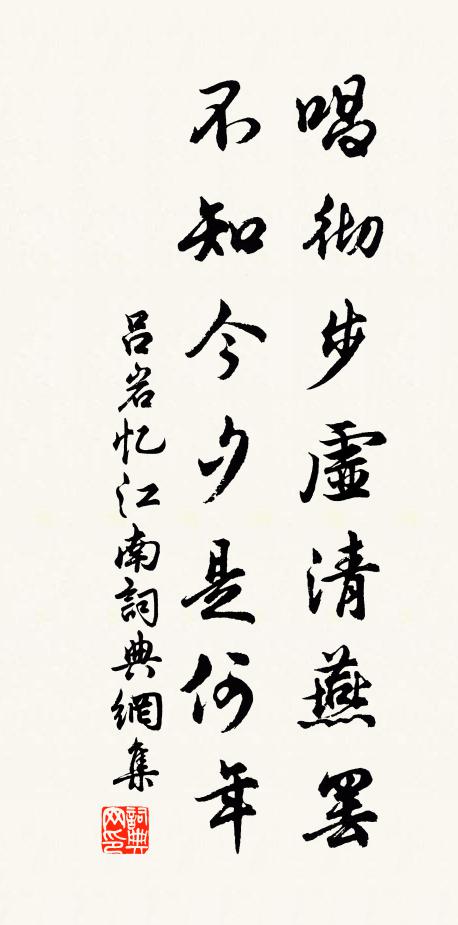 唱彻步虚清燕罢
不知今夕是何年
吕岩忆江南詞典網集
詞典网印